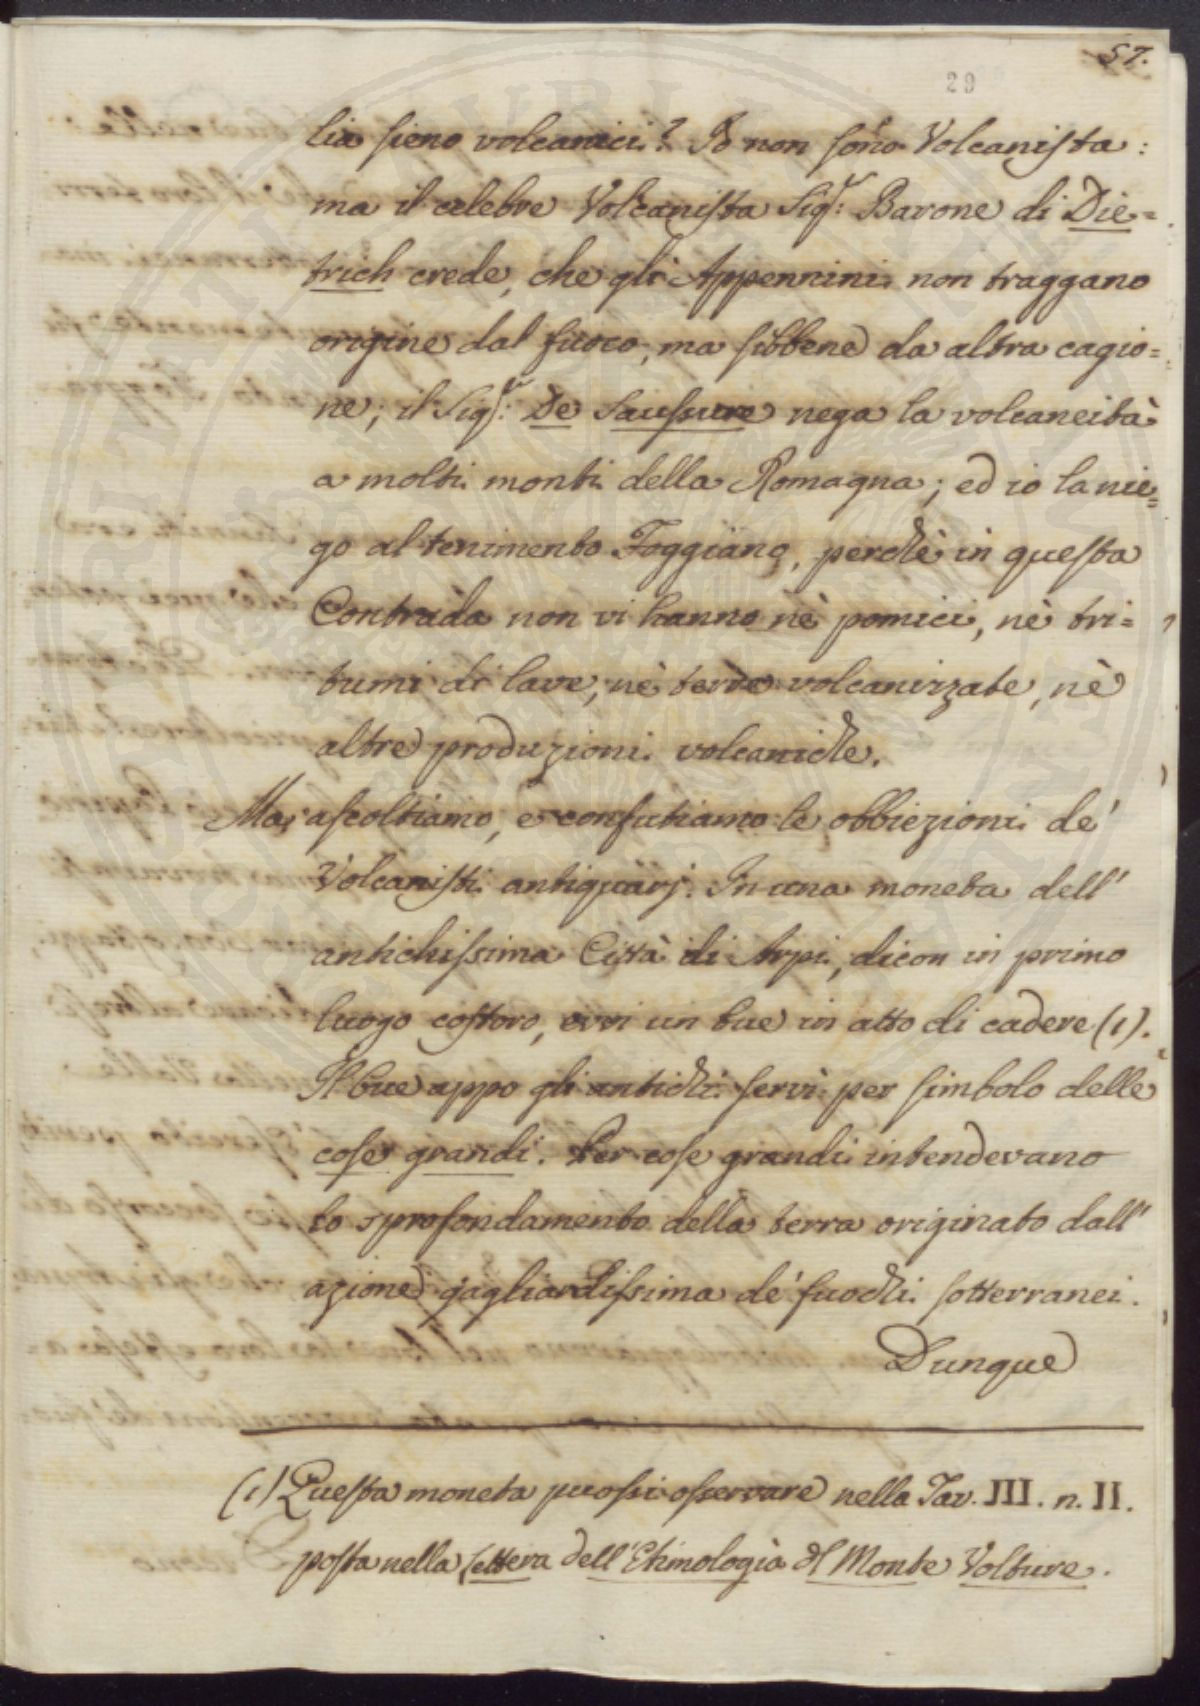 57.
29
lia sieno volcanici? Io non sono Volcanista:
ma il celebre Volcanista Sigr: Barone di Die=
trich crede, che gli Appennini non traggano
origine dal fuoco, ma sibbene da altra cagio=
ne; il Sigr: De Saussure nega la volcaneità
a molti monti della Romagna; ed io la nie=
go al tenimento Foggiano, perchè in questa
Contrada non vi hanno nè pomici, nè tri=
tumi di lave, nè terre volcanizzate, nè
altre produzioni volcaniche.
Ma, ascoltiamo, e confutiamo le obbiezioni de'
Volcanisti antiquarj. In una moneta dell'
antichissima Città di Arpi, dicon in primo
luogo costoro, evvi un bue in atto di cadere (1).
Il bue appo gli antichi servì per simbolo delle
cose grandi. Per cose grandi intendevano
lo sprofondamento della terra originato dall'
azione gagliardissima de' fuochi sotterranei.
Dunque
(1) Questa moneta puossi osservare nella Tav. III. n. II.
posta nella Lettera dell'Etimologia del Monte Volture.